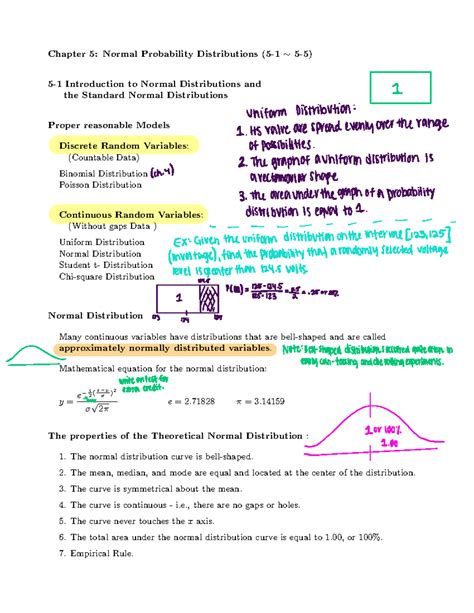 Chapter 5: Normal Probability Distributions (5-1 ~ 5-5)
5-1 Introduction to Normal Distributions and
the Standard Normal Distributions
1
Uniform Distribution:
Proper reasonable Models
1. Its value are spread evenly over the range
of possibilities.
Discrete Random Variables:
(Countable Data)
2. The graph of a uniform distribution is
a rectangular shape
Binomial Distribution (ch.4)
Poisson Distribution
3. The area under the graph of a probability
distribution is equal to 1.
Continuous Random Variables:
(Without gaps Data )
Uniform Distribution
Normal Distribution
Student t- Distribution
Chi-square Distribution
EX: Given the uniform distribution on the interval [123,125]
(in voltage), find the probability that a randomly selected voltage
level is greater than 124.5 volts.
1
123
125
= .25 or
Normal Distribution
Many continuous variables have distributions that are bell-shaped and are called
approximately normally distributed variables.
Note: Bell-shaped distribution is occurred quite often in
Mathematical equation for the normal distribution:
write on test for
extra credit.
y = e^{-½((x-μ)/σ)²} / σ√2π e = 2.71828 π = 3.14159
1 or 100%
1.00
The properties of the Theoretical Normal Distribution :
1. The normal distribution curve is bell-shaped.
2. The mean, median, and mode are equal and located at the center of the distribution.
3. The curve is symmetrical about the mean.
4. The curve is continuous - i.e., there are no gaps or holes.
5. The curve never touches the x axis.
6. The total area under the normal distribution curve is equal to 1.00, or 100%.
7. Empirical Rule.